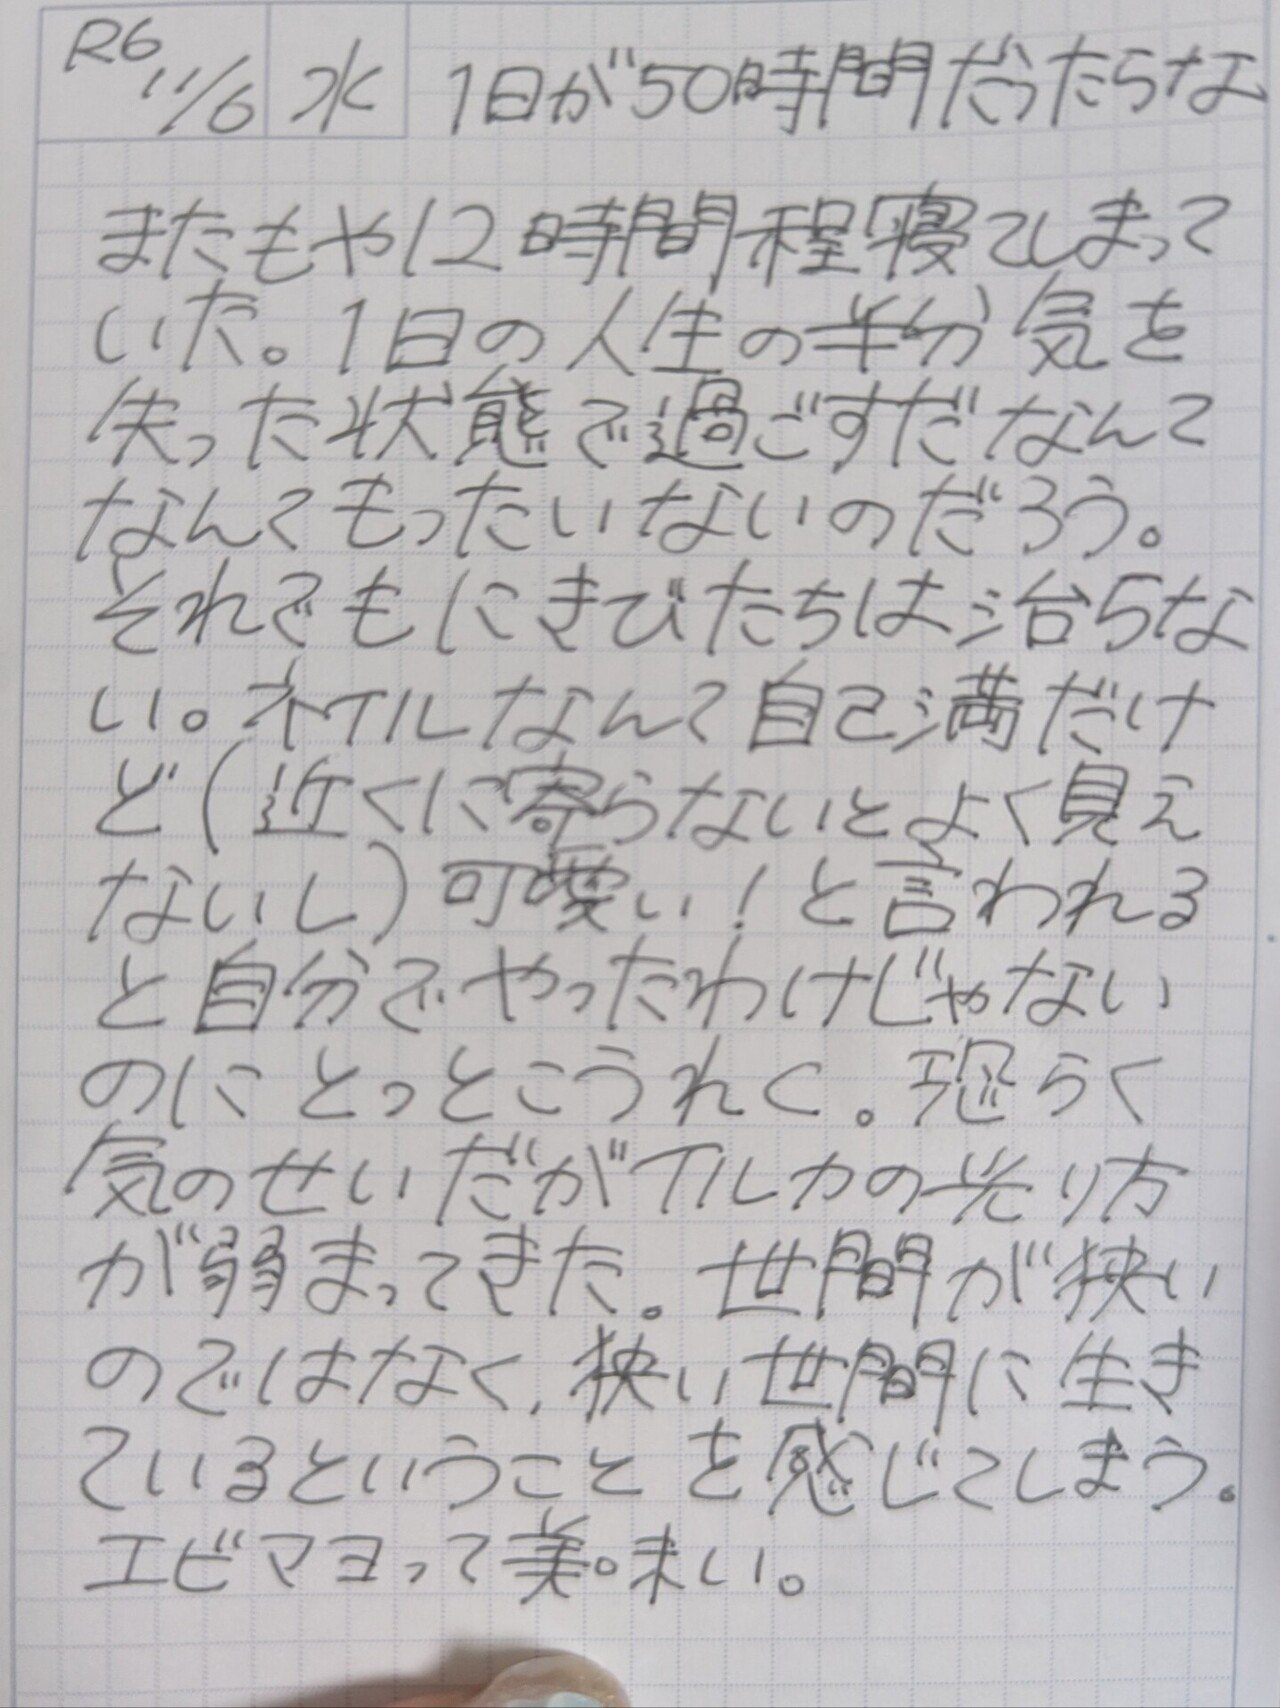 R6 11/6 水 1日が50時間だったらな
またもや12時間程寝てしまって
いた。1日の人生の半分気を
失った状態で過ごすだなんて
なんてもったいないのだろう。
それでもにきびたちは治らな
い。ネイルなんて自己満だけ
ど(近くに寄らないとよく見え
ないし)可愛い!と言われる
と自分でやったわけじゃない
のにとっとこうれく。恐らく
気のせいだがイルカの光り方
が弱まってきた。世間が狭い
のではなく、狭い世間に生き
ているということを感じてしまう。
エビマヨって美味い。